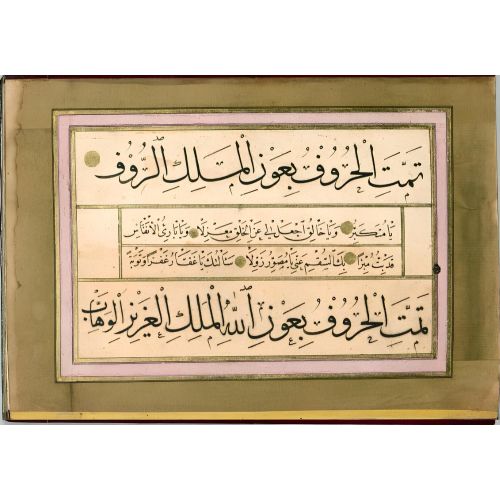 تمت الحروف بعون الملك الرؤف
يا متكبر ويا خالق اجعل لي عن الخلق معزلا ويا بارئ الأنفاس
بك السقم عني يا مصور زولا سألتك يا غفار غفرا وتوبة
تمت الحروف بعون الله الملك العزيز الوهاب